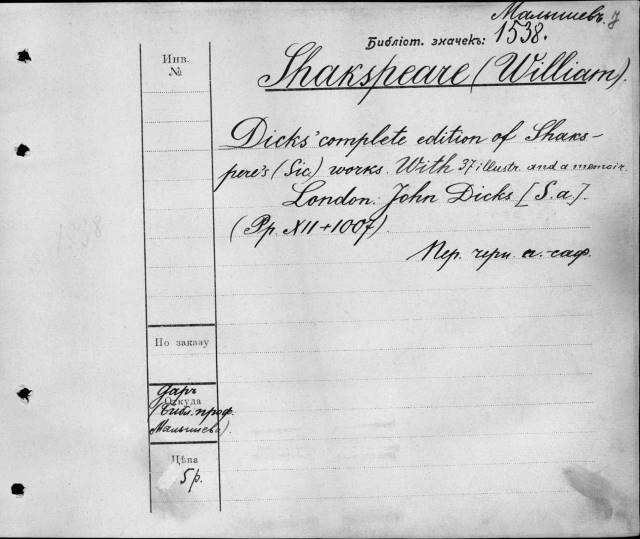 Малышевъ
Библіот. значекъ: 1538.
Инв.
№
Shakspeare (William).
Dicks' complete edition of Shaks-
pere's (Sic) works. With 37 illustr. and a memoir.
London: John Dicks [S.a.].
(Pp. XII+1007)
Пер. черн. а.-саф.
1538
По заказу
Даръ
Откуда
(Библ. проф.
Малышева).
Цѣна
5 р.